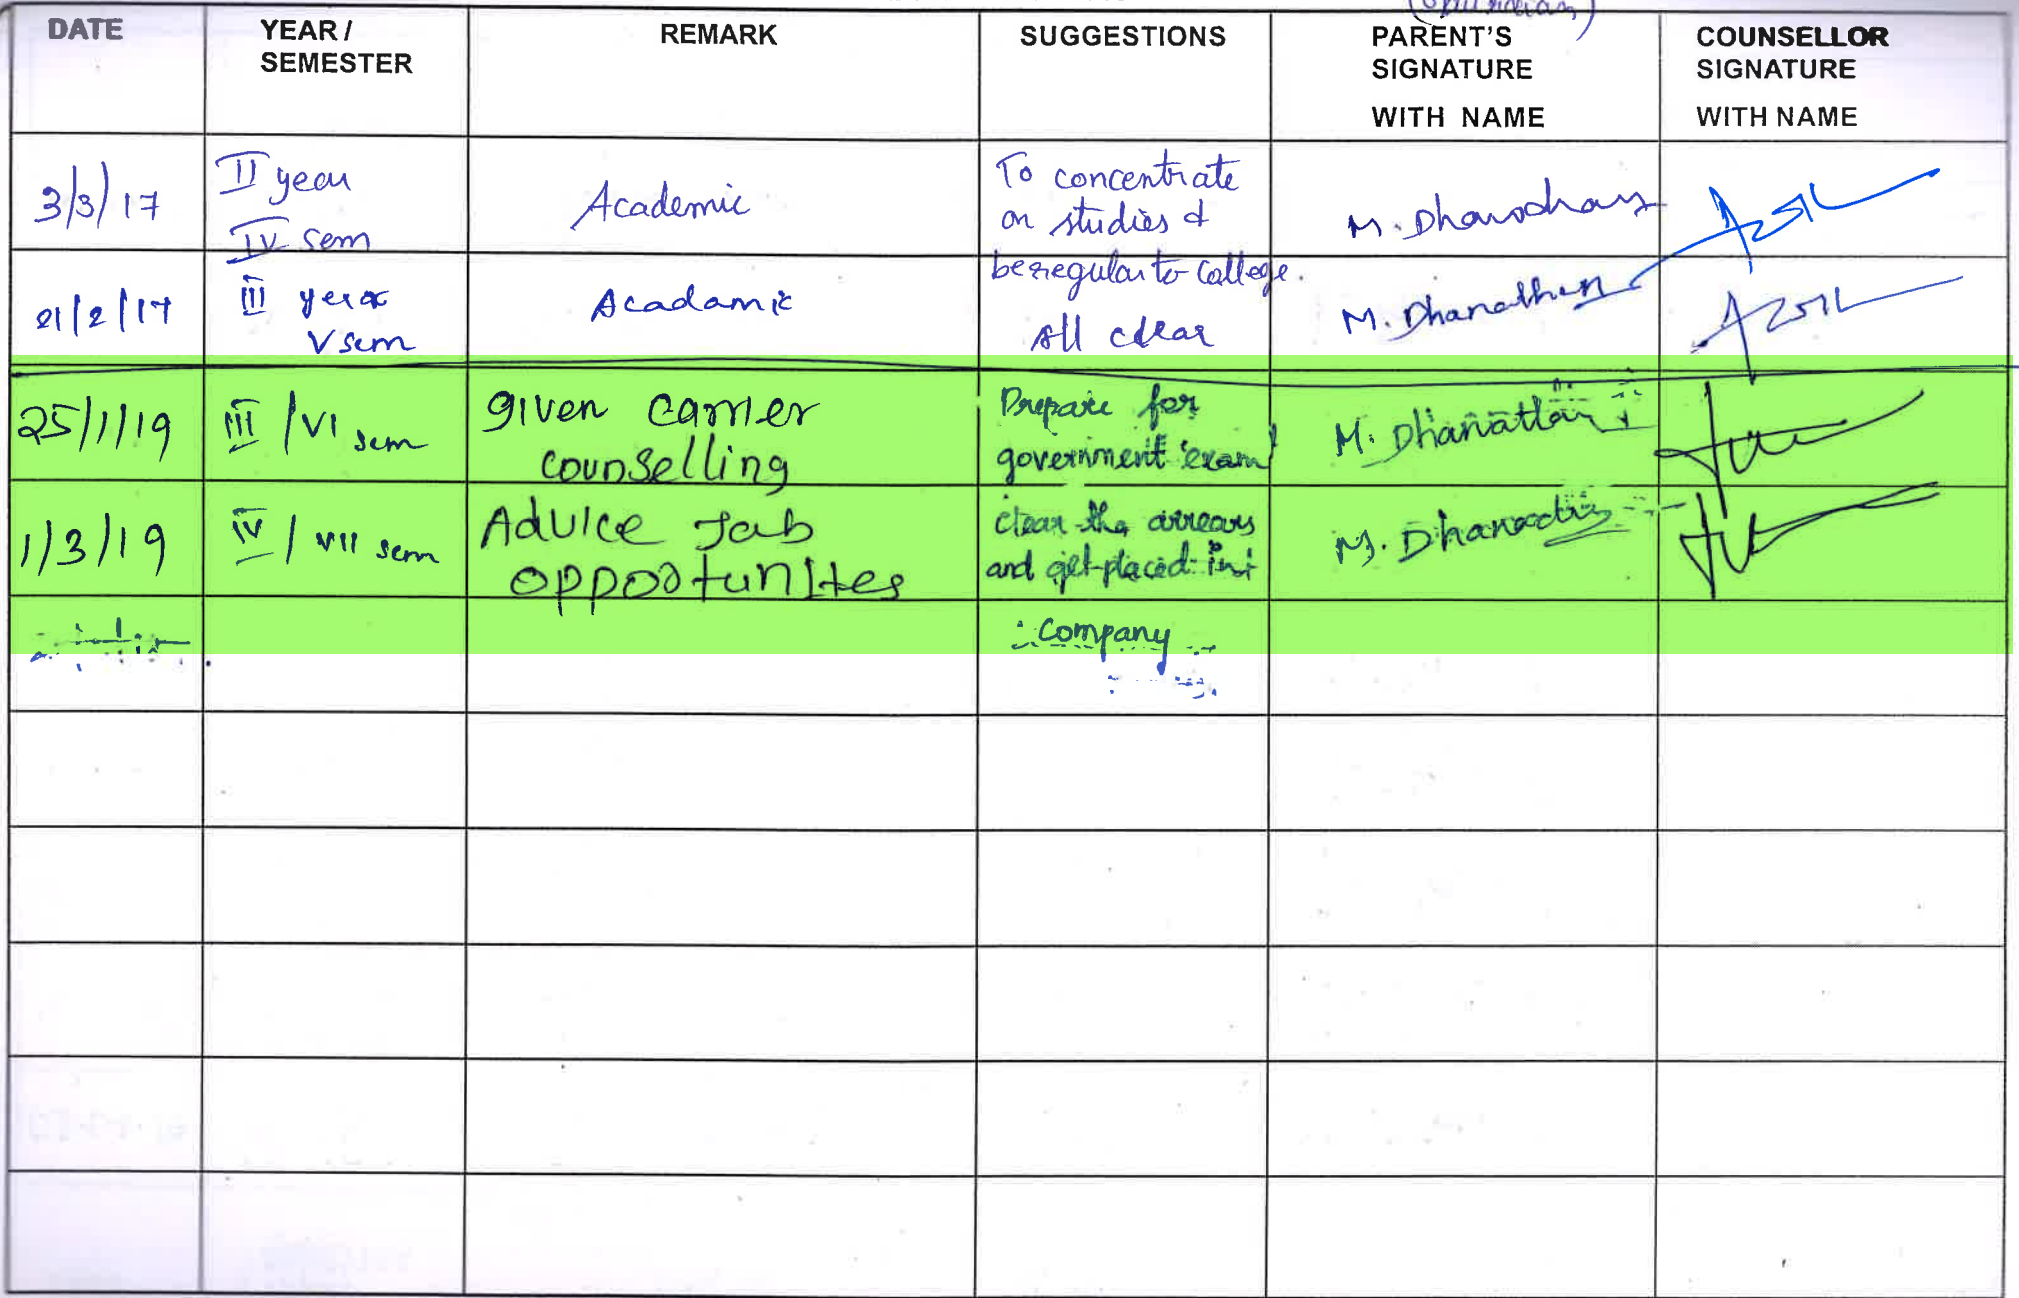 DATE YEAR / SEMESTER REMARK SUGGESTIONS PARENT'S SIGNATURE WITH NAME COUNSELLOR SIGNATURE WITH NAME
3/3/17 II year IV sem Academic To concentrate on studies & be regular to college. M.
21/2/17 III year V sem Acadamic All clear M. Dhanathan
25/1/19 III / VI sem given carrier counselling Prepare for government exam M. Dhanathan
1/3/19 IV / VII sem Advice Job opportunites clear the arrears and get placed in company M.